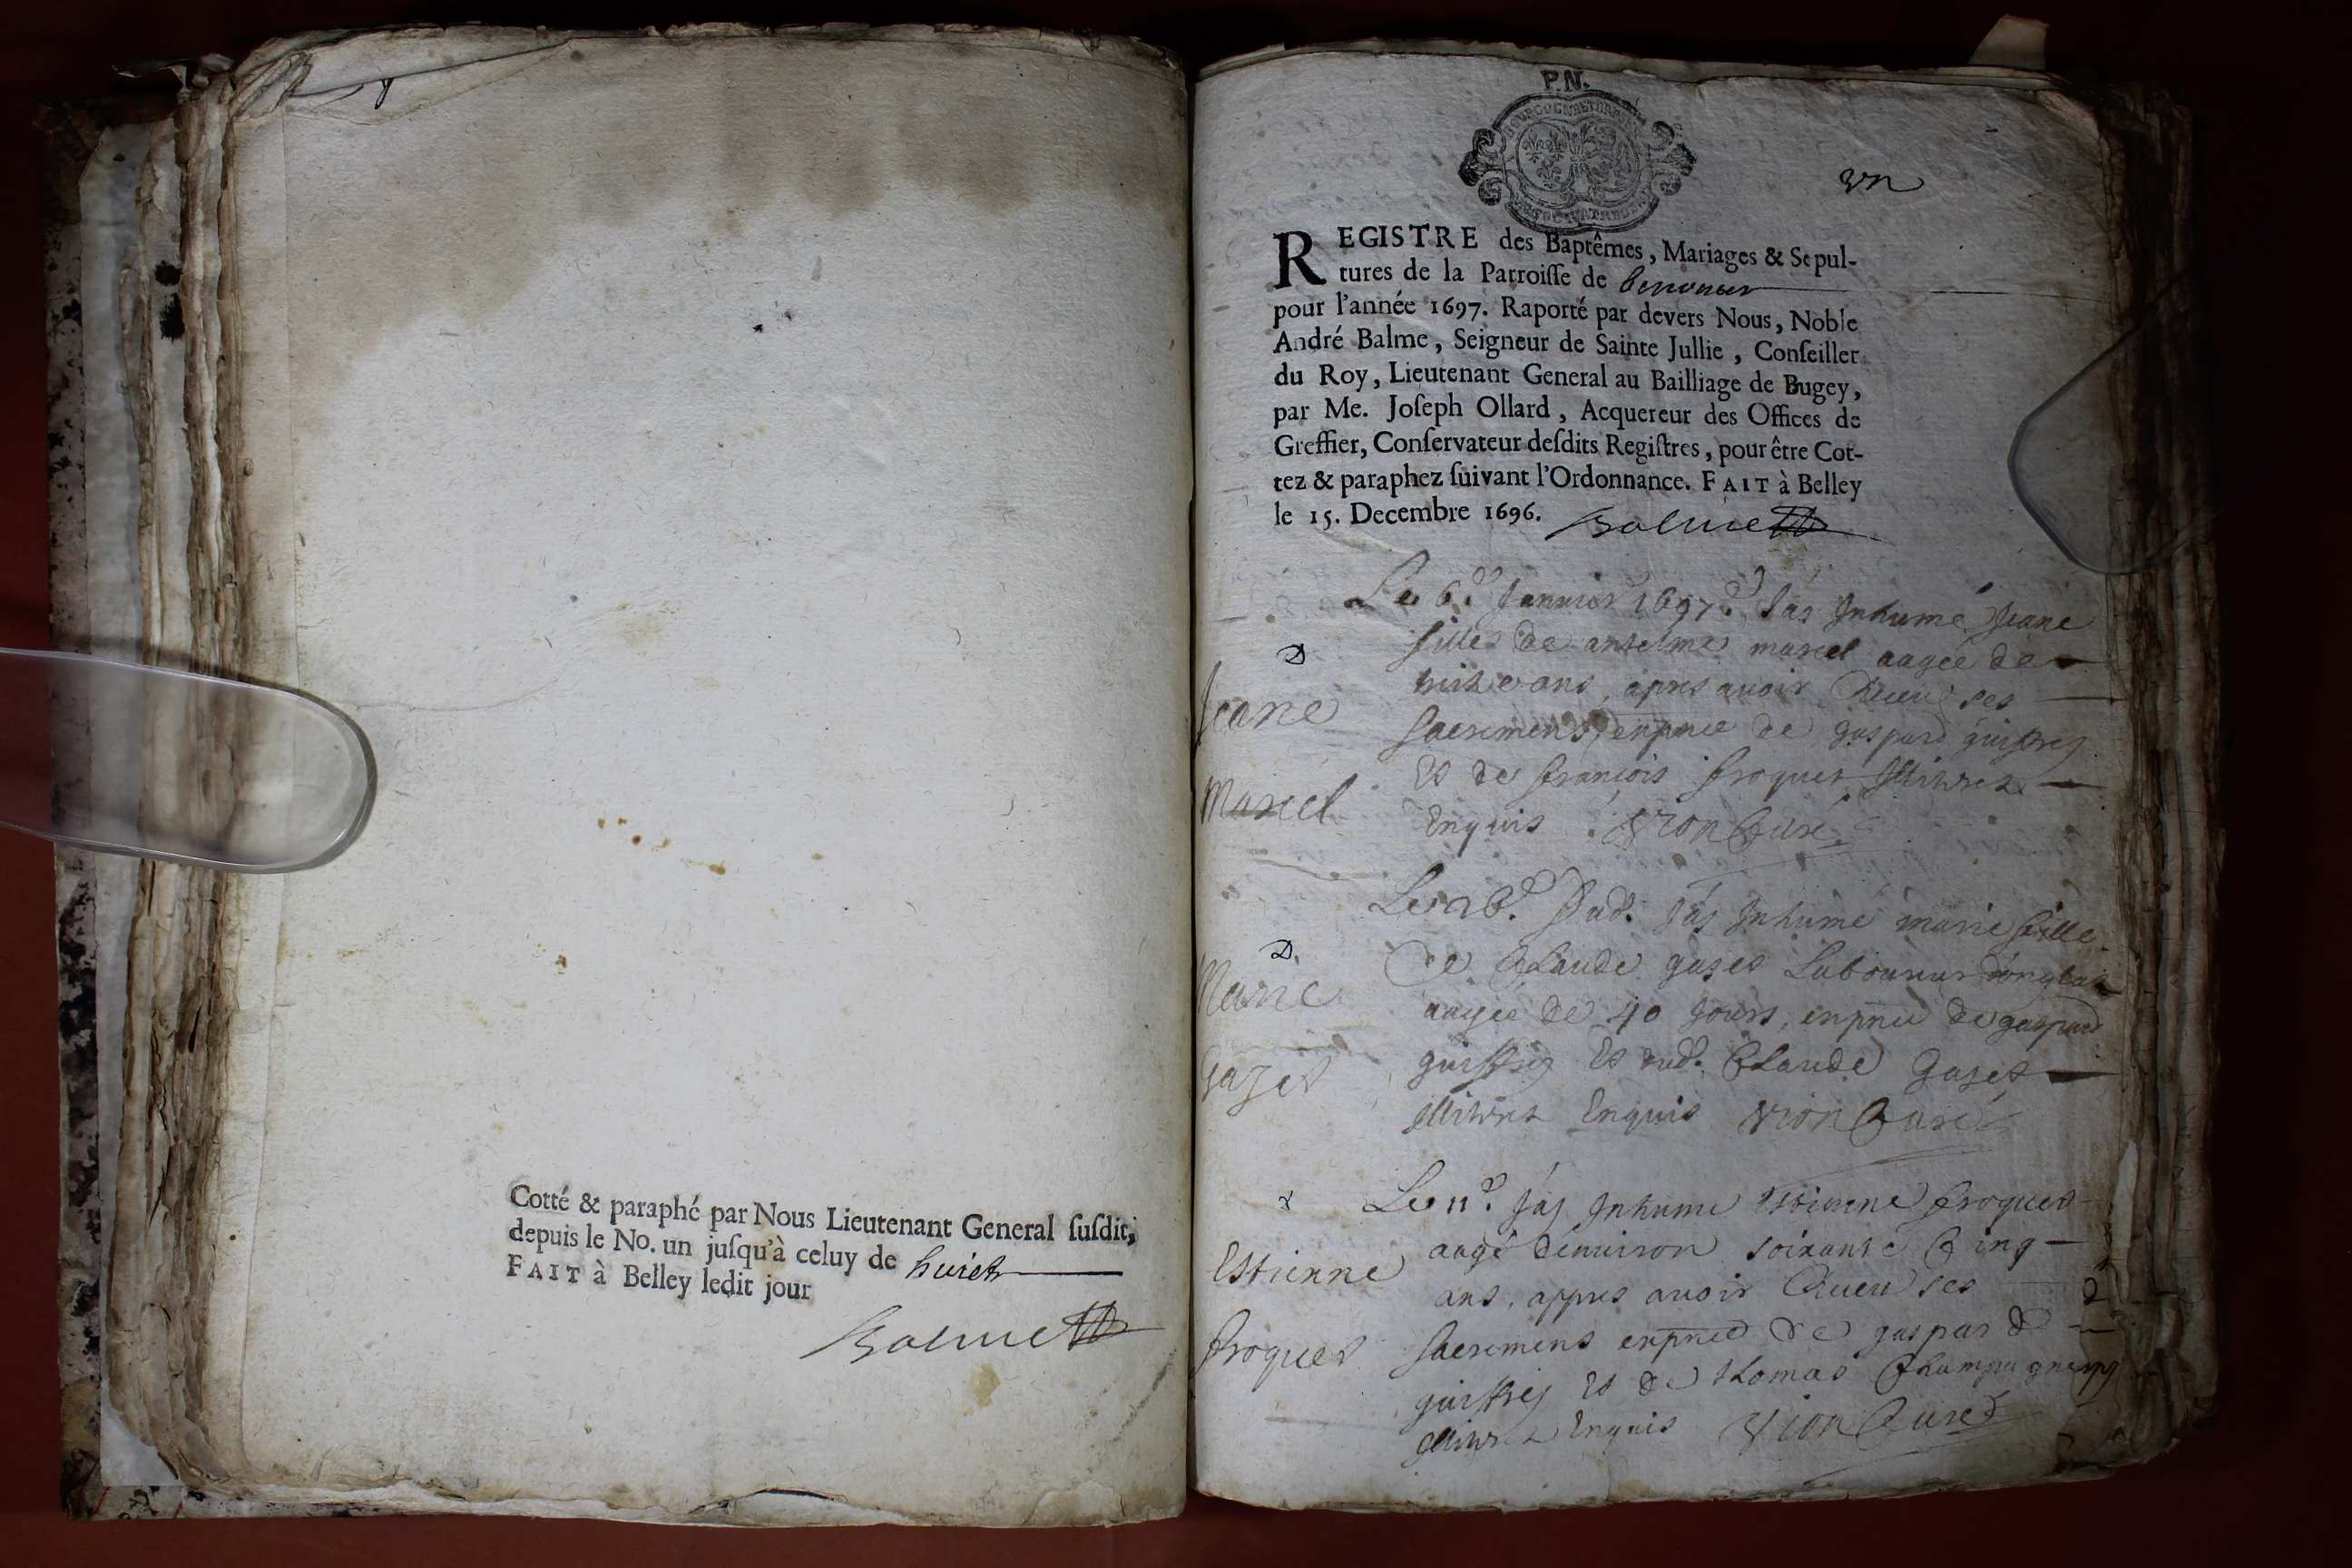 Cotté & paraphé par Nous Lieutenant General ſuſdit,
depuis le No. un juſqu'à celuy de huict
FAIT à Belley ledit jour
Balme
P.N.
un
REGISTRE des Baptêmes, Mariages & Sepul-
tures de la Parroiſſe de
pour l'année 1697. Raporté par devers Nous, Noble
André Balme, Seigneur de Sainte Jullie, Conſeiller
du Roy, Lieutenant General au Bailliage de Bugey,
par Me. Joſeph Ollard, Acquereur des Offices de
Greffier, Conſervateur deſdits Regiſtres, pour être Cot-
tez & paraphez ſuivant l'Ordonnance. FAIT à Belley
le 15. Decembre 1696. Balme
Le 6e Janvier 1697 Jay Inhumé Jeane
fille de antelme marcel aagée de
ans, apres avoir Receu ses
Sacremens, enpnce de gaspard guiffrey
Et de francois froquet
Enquis Vion Curé
Jeane
Marcel
Le Jay Inhumé marie fille
De Claude gajet Laboureur
aagée de 40 Jours, enpnce de gaspard
guiffrey Et dud. Claude Gajet
Enquis Vion Curé
Marie
Gajet
Le 11e Jay Inhumé Estienne froquet
aagé denviron soixante Cinq
ans, appres avoir Receu ses
Sacremens enpnce de gaspard
guiffrey Et de thomas
Enquis Vion Curé
Estienne
froquet